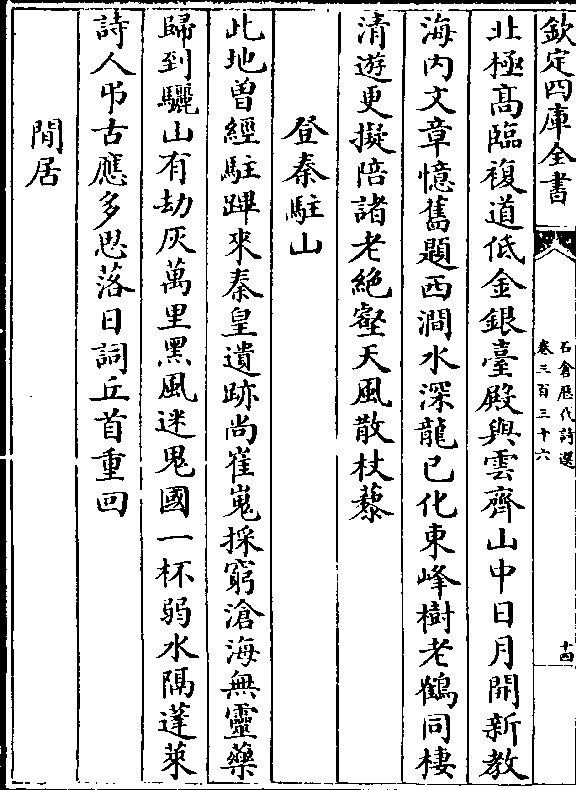 欽定四庫全書
石倉歷代詩選
卷三百三十六
十四
北極髙臨複道低金銀臺殿與雲齊山中日月開新教
海内文章憶舊題西澗水深龍已化東峰樹老鶴同棲
清遊更擬陪諸老絶壑天風散杖藜
登秦駐山
此地曽經駐蹕來秦皇遺跡尚崔嵬採窮滄海無靈藥
歸到驪山有劫灰萬里黑風迷鬼國一杯弱水隔蓬萊
詩人弔古應多思落日詞丘首重囘
閒居